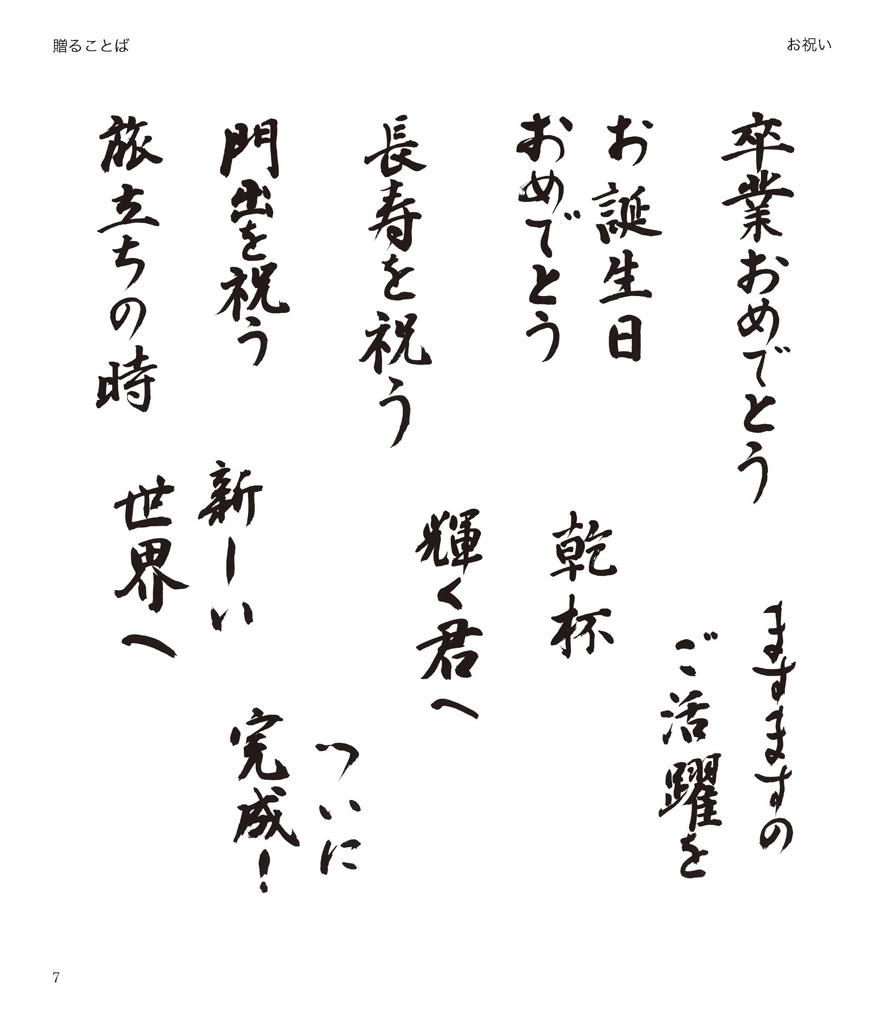 贈ることば
お祝い
卒業おめでとう
ますますの
ご活躍を
お誕生日
おめでとう
乾杯
長寿を祝う
輝く君へ
門出を祝う
ついに
完成！
旅立ちの時
新しい
世界へ
7